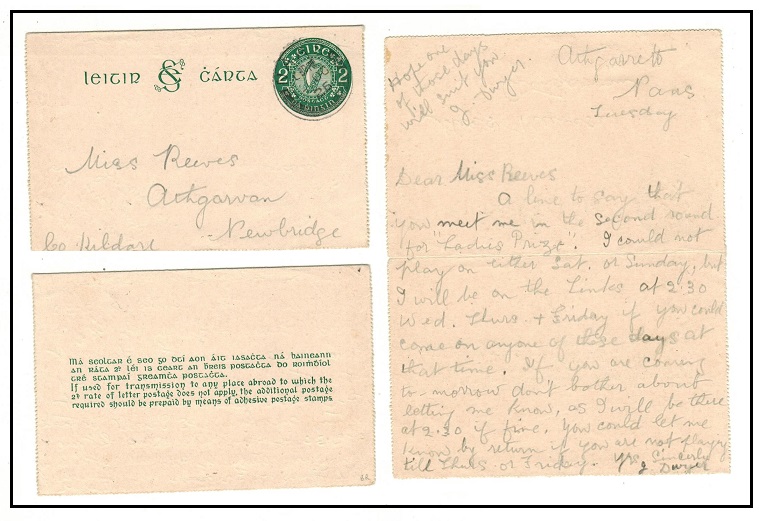 leitir cárta
EIRE
2 2
POSTAGE
Miss Reeves
Athgarvan
Newbridge
Co Kildare
má seoltar é seo go dtí aon áit iasachta ná baineann
an ráta 2ᴰ léi is ceart an bhreis postachta do roimhdíol
tré stampaí greamtha postachta.
If used for transmission to any place abroad to which the
2ᴰ rate of letter postage does not apply, the additional postage
required should be prepaid by means of adhesive postage stamps
Hope one
of these days
will suit you
J. Dwyer.
Athgarrett
Naas
Tuesday
Dear Miss Reeves
A line to say that
you meet me in the second round
for "Ladies Prize". I could not
play on either Sat. or Sunday, but
I will be on the Links at 2.30
Wed. Thurs. + Friday if you could
come on anyone of those days at
that time. If you are coming
to-morrow don't bother about
letting me know, as I will be there
at 2.30 if fine. You could let me
know by return if you are not playing
till Thurs. or Friday. Yrs Sincerely
J Dwyer